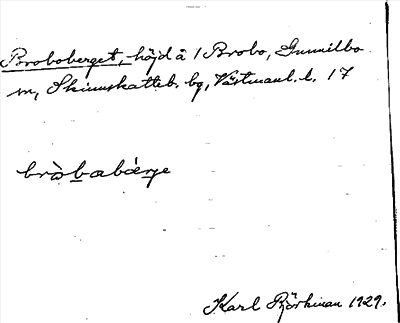 Broboberget, höjd å 1 Brobo, Gunnilbo
sn, Skinnskatteb. bg, Västmanl. l. 17
bròbabǽrje
Karl Björkman 1929.